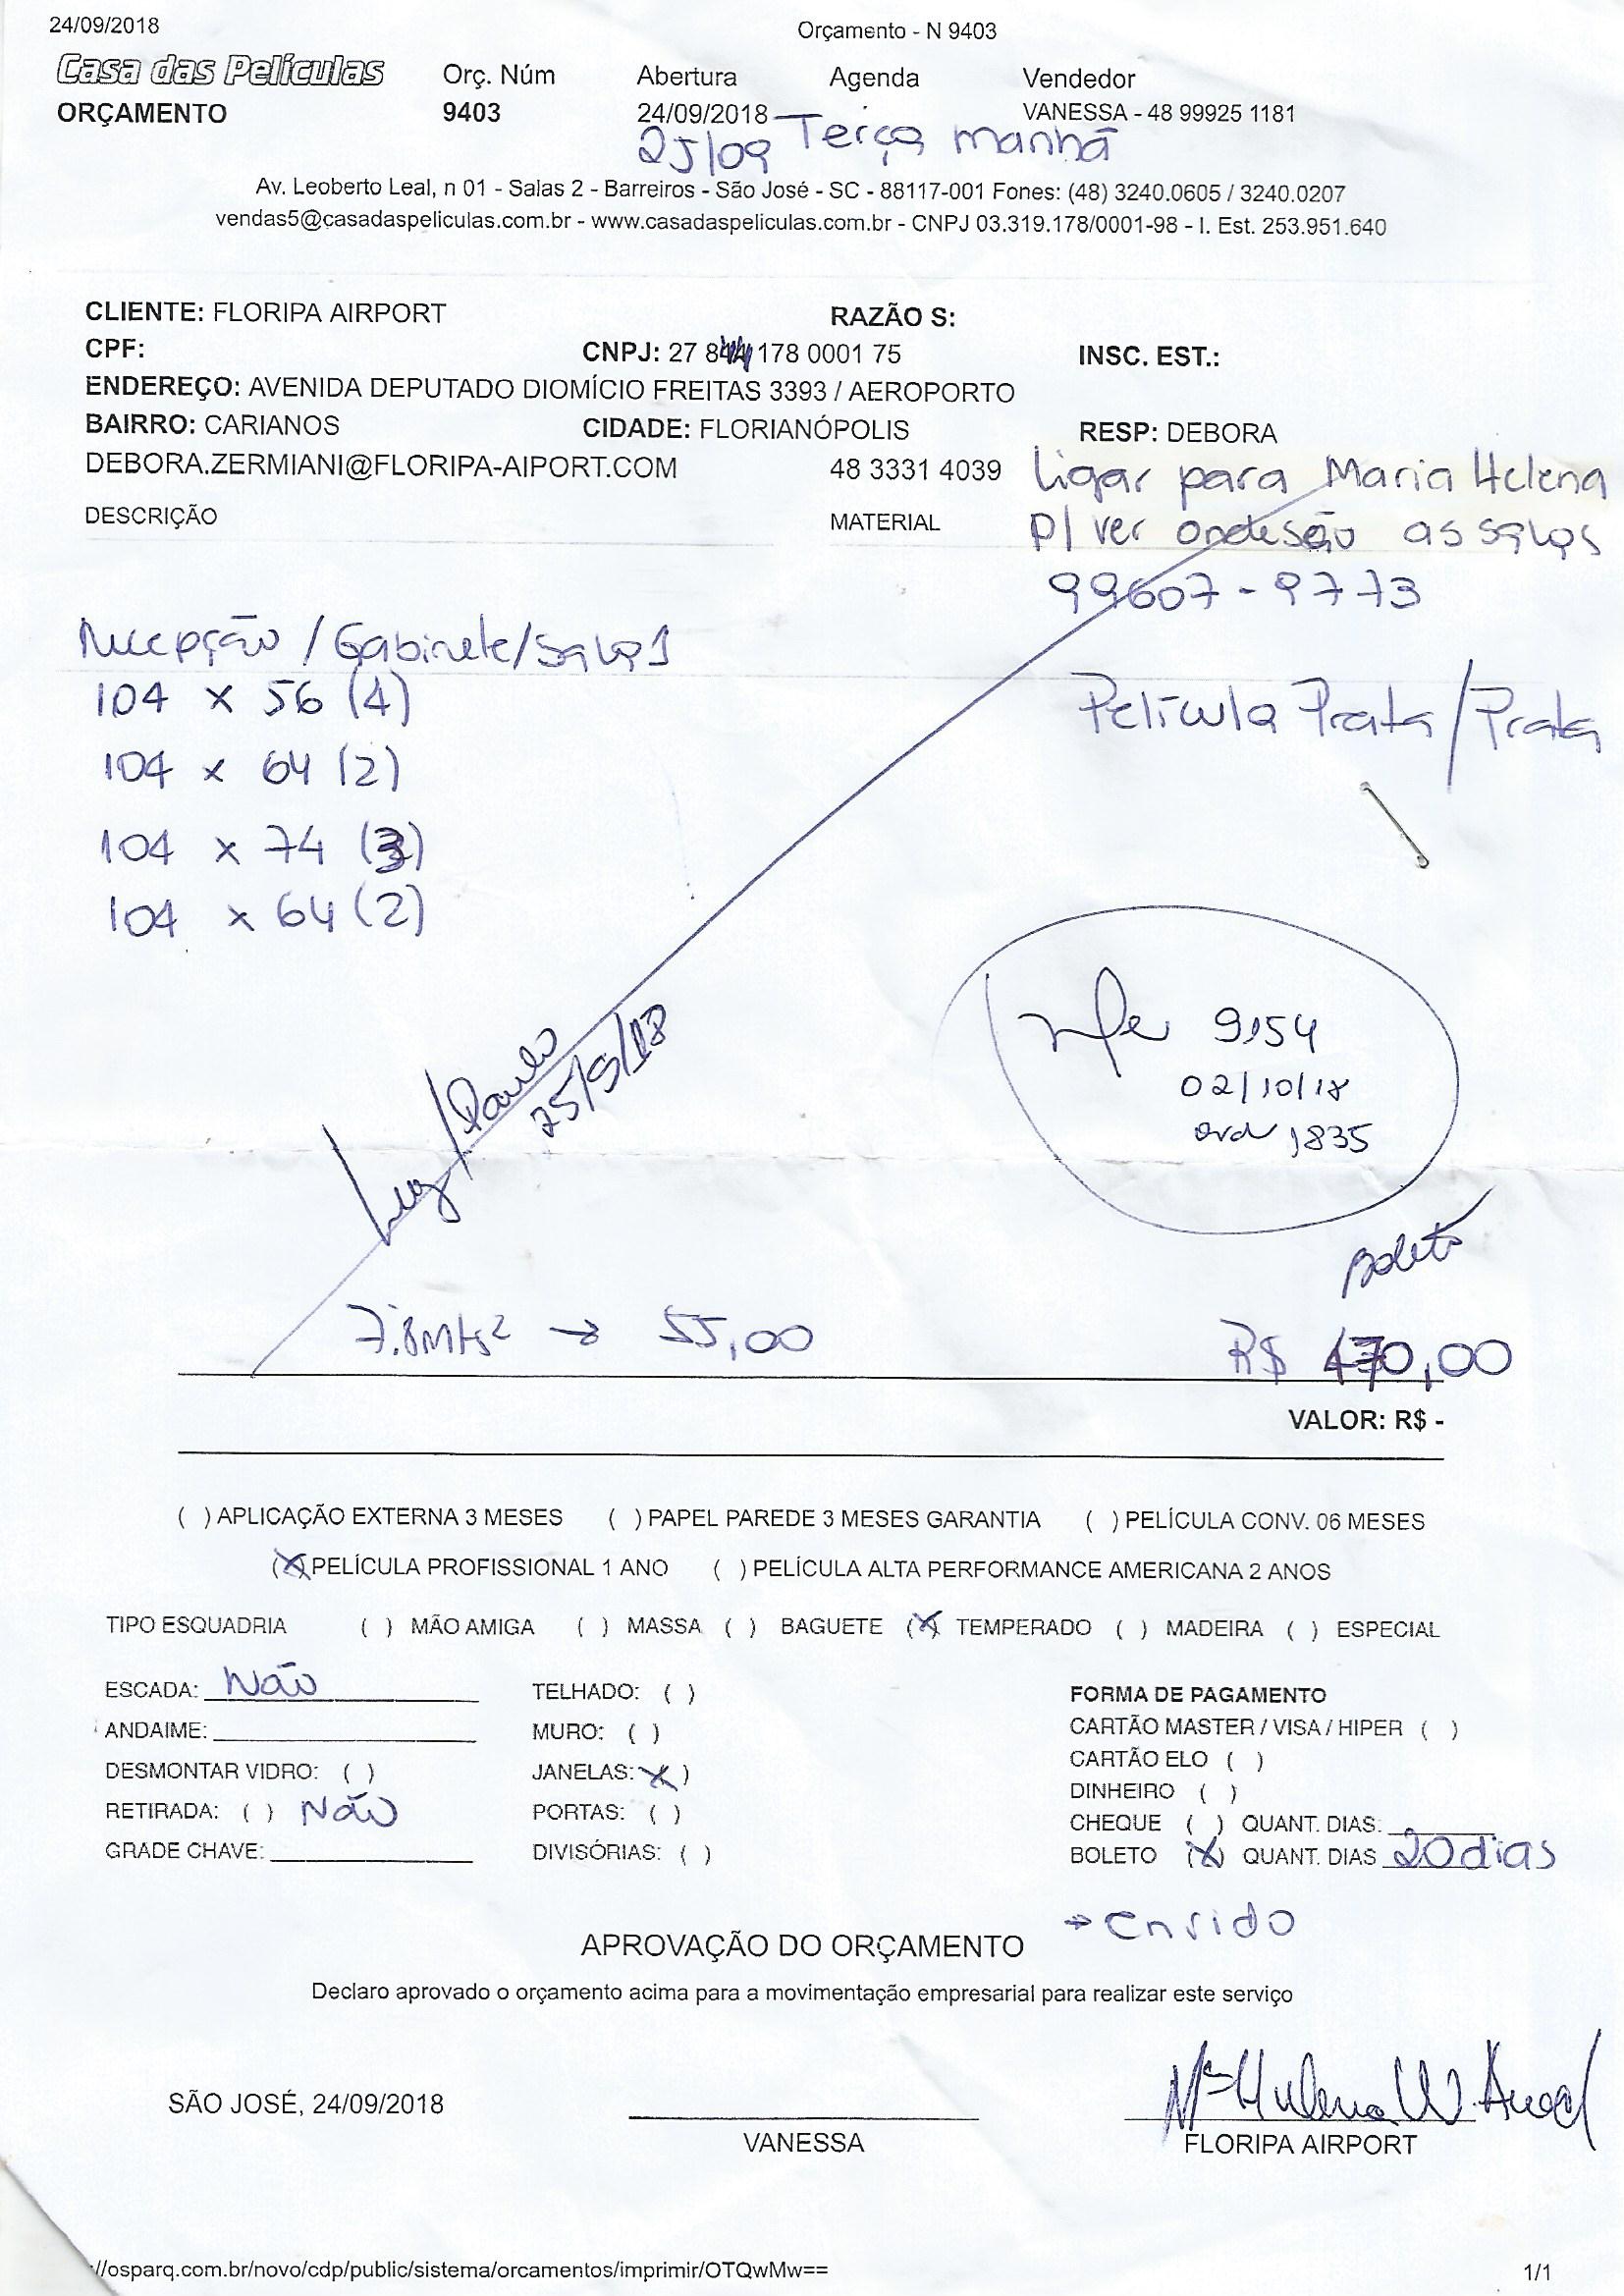 24/09/2018 Orçamento - N 9403
Casa das Películas Orç. Núm Abertura Agenda Vendedor
ORÇAMENTO 9403 24/09/2018 VANESSA - 48 99925 1181
25/09 Terça manhã
Av. Leoberto Leal, n 01 - Salas 2 - Barreiros - São José - SC - 88117-001 Fones: (48) 3240.0605 / 3240.0207
vendas5@casadaspeliculas.com.br - www.casadaspeliculas.com.br - CNPJ 03.319.178/0001-98 - I. Est. 253.951.640
CLIENTE: FLORIPA AIRPORT RAZÃO S:
CPF: CNPJ: 27 844 178 0001 75 INSC. EST.:
ENDEREÇO: AVENIDA DEPUTADO DIOMÍCIO FREITAS 3393 / AEROPORTO
BAIRRO: CARIANOS CIDADE: FLORIANÓPOLIS RESP: DEBORA
DEBORA.ZERMIANI@FLORIPA-AIPORT.COM 48 3331 4039 Ligar para Maria Helena
DESCRIÇÃO MATERIAL p/ ver onde são as salas
99607-9773
Recepção / Gabinete / Sala 1
104 x 56 (4) Película Prata / Prata
104 x 64 (2)
104 x 74 (3)
104 x 64 (2)
9154
02/10/18
1835
Luz / Paulo
25/9/18
boleto
7.8 Mts² → 55,00 R$ 430,00
VALOR: R$ -
( ) APLICAÇÃO EXTERNA 3 MESES ( ) PAPEL PAREDE 3 MESES GARANTIA ( ) PELÍCULA CONV. 06 MESES
(X) PELÍCULA PROFISSIONAL 1 ANO ( ) PELÍCULA ALTA PERFORMANCE AMERICANA 2 ANOS
TIPO ESQUADRIA ( ) MÃO AMIGA ( ) MASSA ( ) BAGUETE (X) TEMPERADO ( ) MADEIRA ( ) ESPECIAL
ESCADA: Não TELHADO: ( ) FORMA DE PAGAMENTO
ANDAIME: MURO: ( ) CARTÃO MASTER / VISA / HIPER ( )
DESMONTAR VIDRO: ( ) JANELAS: (X) CARTÃO ELO ( )
DINHEIRO ( )
RETIRADA: ( ) Não PORTAS: ( ) CHEQUE ( ) QUANT. DIAS:
GRADE CHAVE: DIVISÓRIAS: ( ) BOLETO (X) QUANT. DIAS 20 dias
APROVAÇÃO DO ORÇAMENTO
Declaro aprovado o orçamento acima para a movimentação empresarial para realizar este serviço
SÃO JOSÉ, 24/09/2018
VANESSA FLORIPA AIRPORT
//osparq.com.br/novo/cdp/public/sistema/orcamentos/imprimir/OTQwMw== 1/1